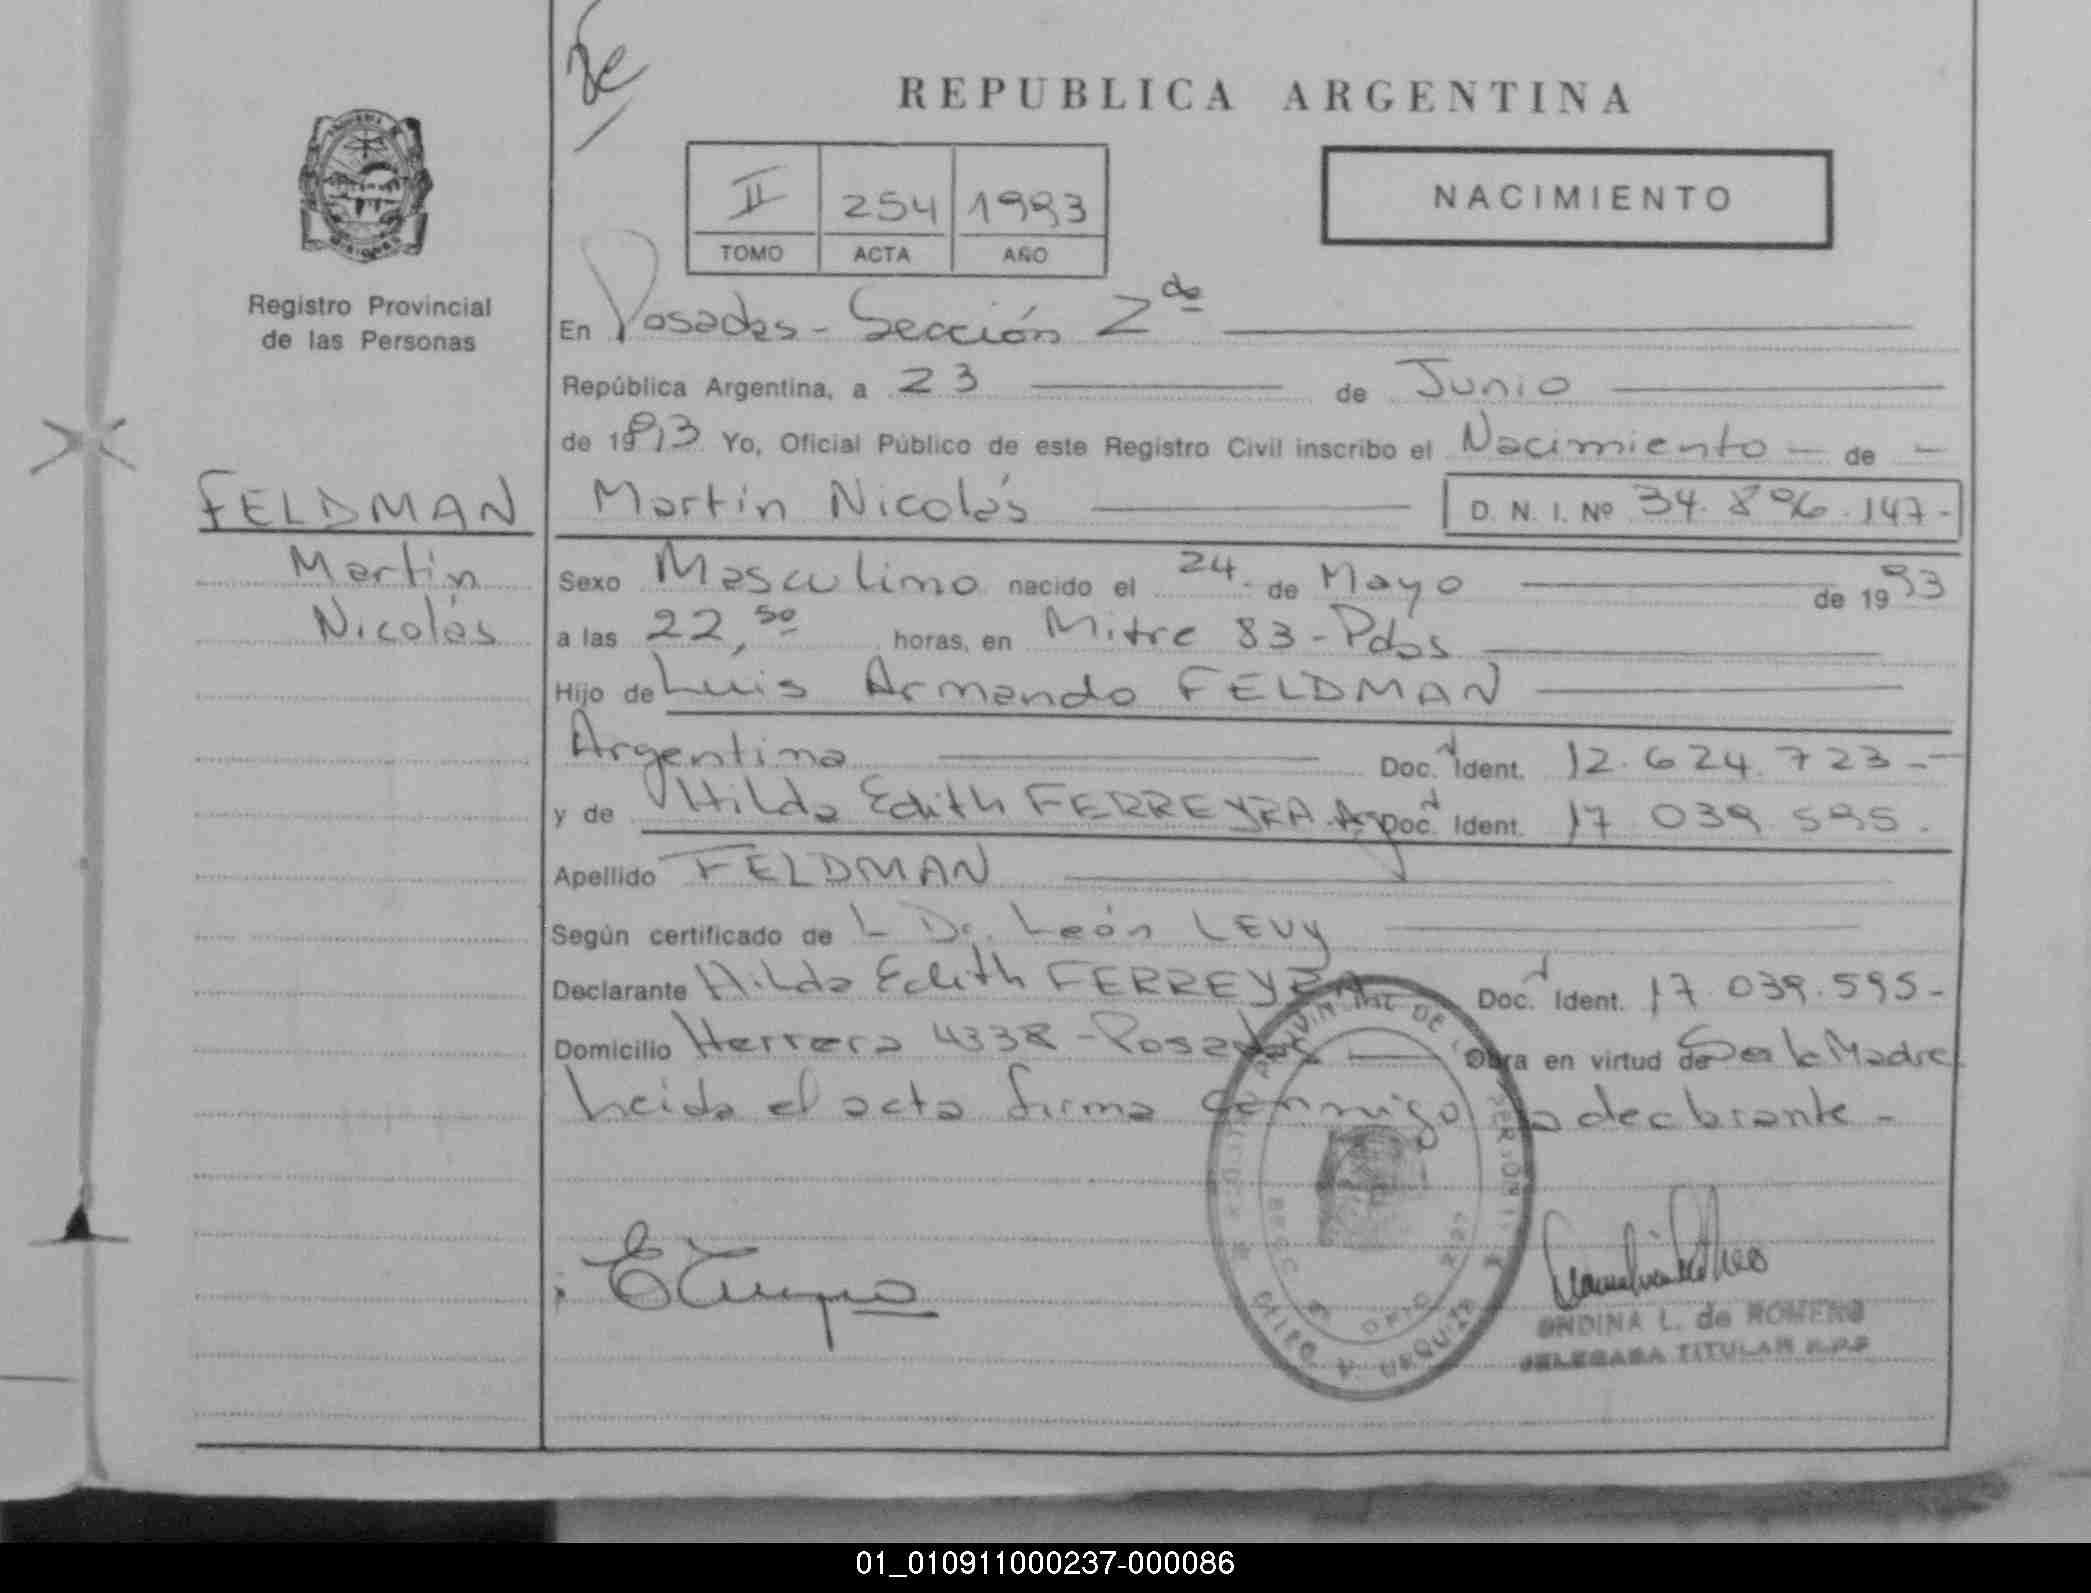 REPUBLICA ARGENTINA
II 254 1993
TOMO ACTA AÑO
NACIMIENTO
Registro Provincial
de las Personas
En Posadas - Sección 2da
República Argentina, a 23 de Junio
de 1993 Yo, Oficial Público de este Registro Civil inscribo el Nacimiento - de -
FELDMAN
Martín
Nicolás
Martín Nicolás D. N. I. Nº 34.896.147-
Sexo Masculino nacido el 24 de Mayo de 1993
a las 22,50 horas, en Mitre 83 - Pdas
Hijo de Luis Armando FELDMAN
Argentina Doc. Ident. 12.624.723--
y de Hilda Edith FERREYRA Arg Doc. Ident. 17 039 595.
Apellido FELDMAN
Según certificado de L Dr. León LEVY
Declarante Hilda Edith FERREYRA Doc. Ident. 17.039.595-
Domicilio Herrera 4338 - Posadas Obra en virtud de Ser la Madre
Leida el acta firma conmigo la declarante -
ONDINA L. de ROMERO
DELEGADA TITULAR R.P.P
01_010911000237-000086